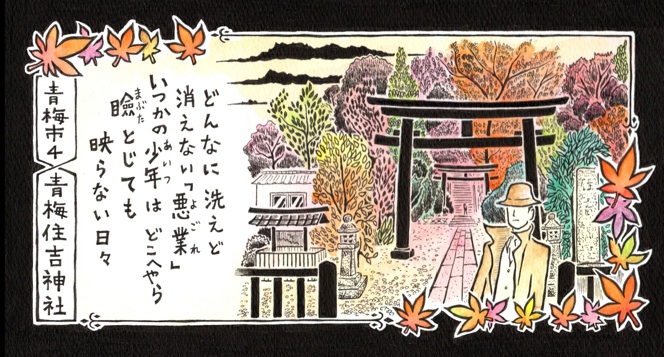 どんなに洗えど
消えない「悪業」
よごれ
いつかの少年は どこへやら
あいつ
瞼とじても
まぶた
映らない日々
青梅市4
青梅住吉神社